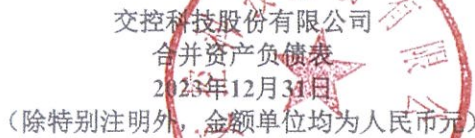 交控科技股份有限公司
合并资产负债表
2023年12月31日
（除特别注明外，金额单位均为人民币元）